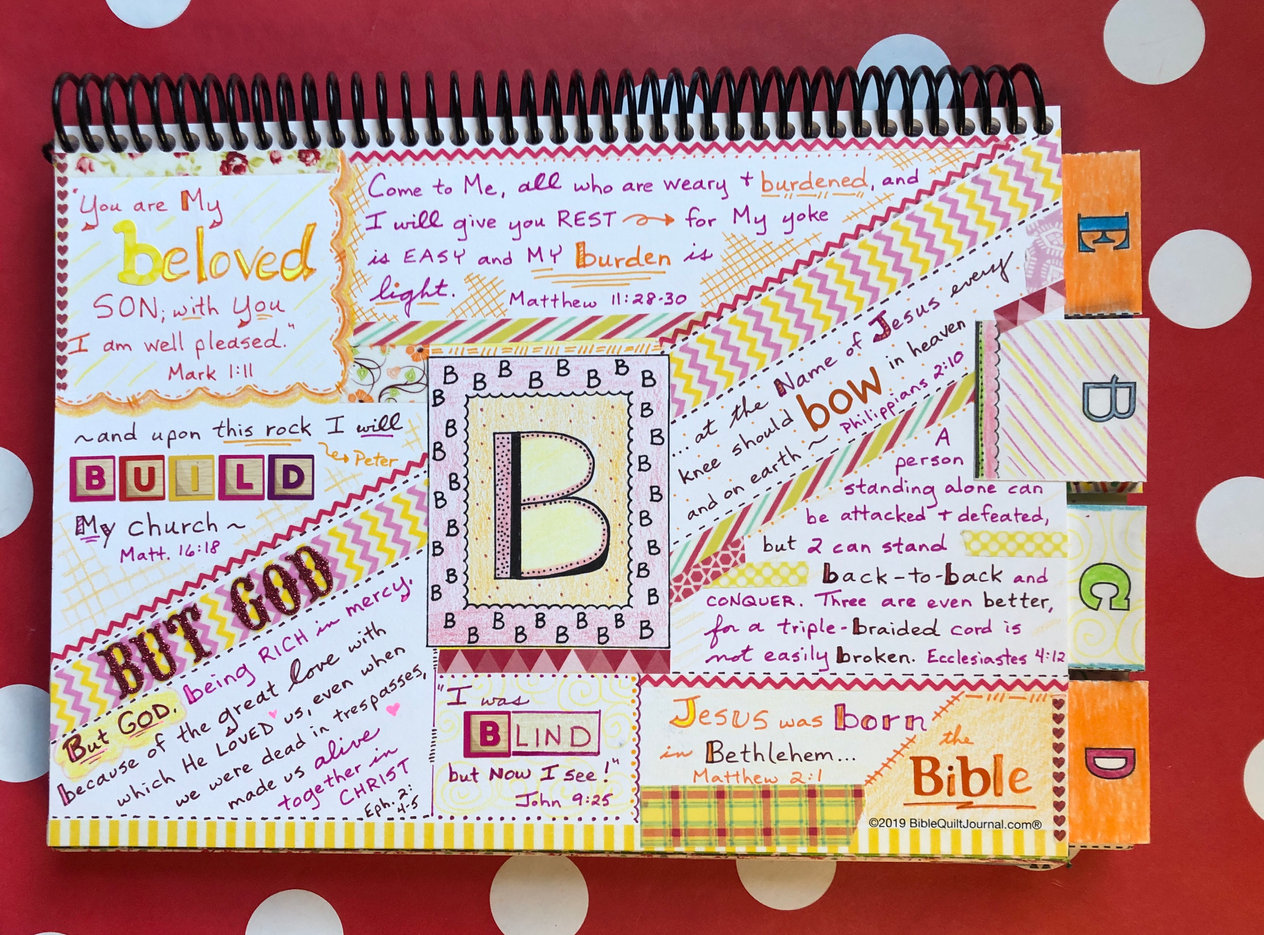 "You are My
beloved
SON; with You
I am well pleased."
Mark 1:11
Come to Me, all who are weary + burdened, and
I will give you REST → for My yoke
is EASY and MY burden is
light.
Matthew 11:28-30
~and upon this rock I will
Peter
BUILD
My church~
Matt. 16:18
BUT GOD
But GOD, being RICH in mercy,
because of the great love with
which He LOVED us, even when
we were dead in trespasses,
made us alive
together in
CHRIST
Eph. 2:
4-5
B B B B B B B
B B
B B
B B
B B
B B
B B
B B B B B B B
B
...at the Name of Jesus every
knee should bow in heaven
and on earth ~ Philippians 2:10
A
person
standing alone can
be attacked + defeated,
but 2 can stand
back-to-back and
CONQUER. Three are even better,
for a triple-braided cord is
not easily broken. Ecclesiastes 4:12
"I was
BLIND
but Now I see!"
John 9:25
Jesus was born
in Bethlehem...
Matthew 2:1
the
Bible
©2019 BibleQuiltJournal.com®
E
B
C
D